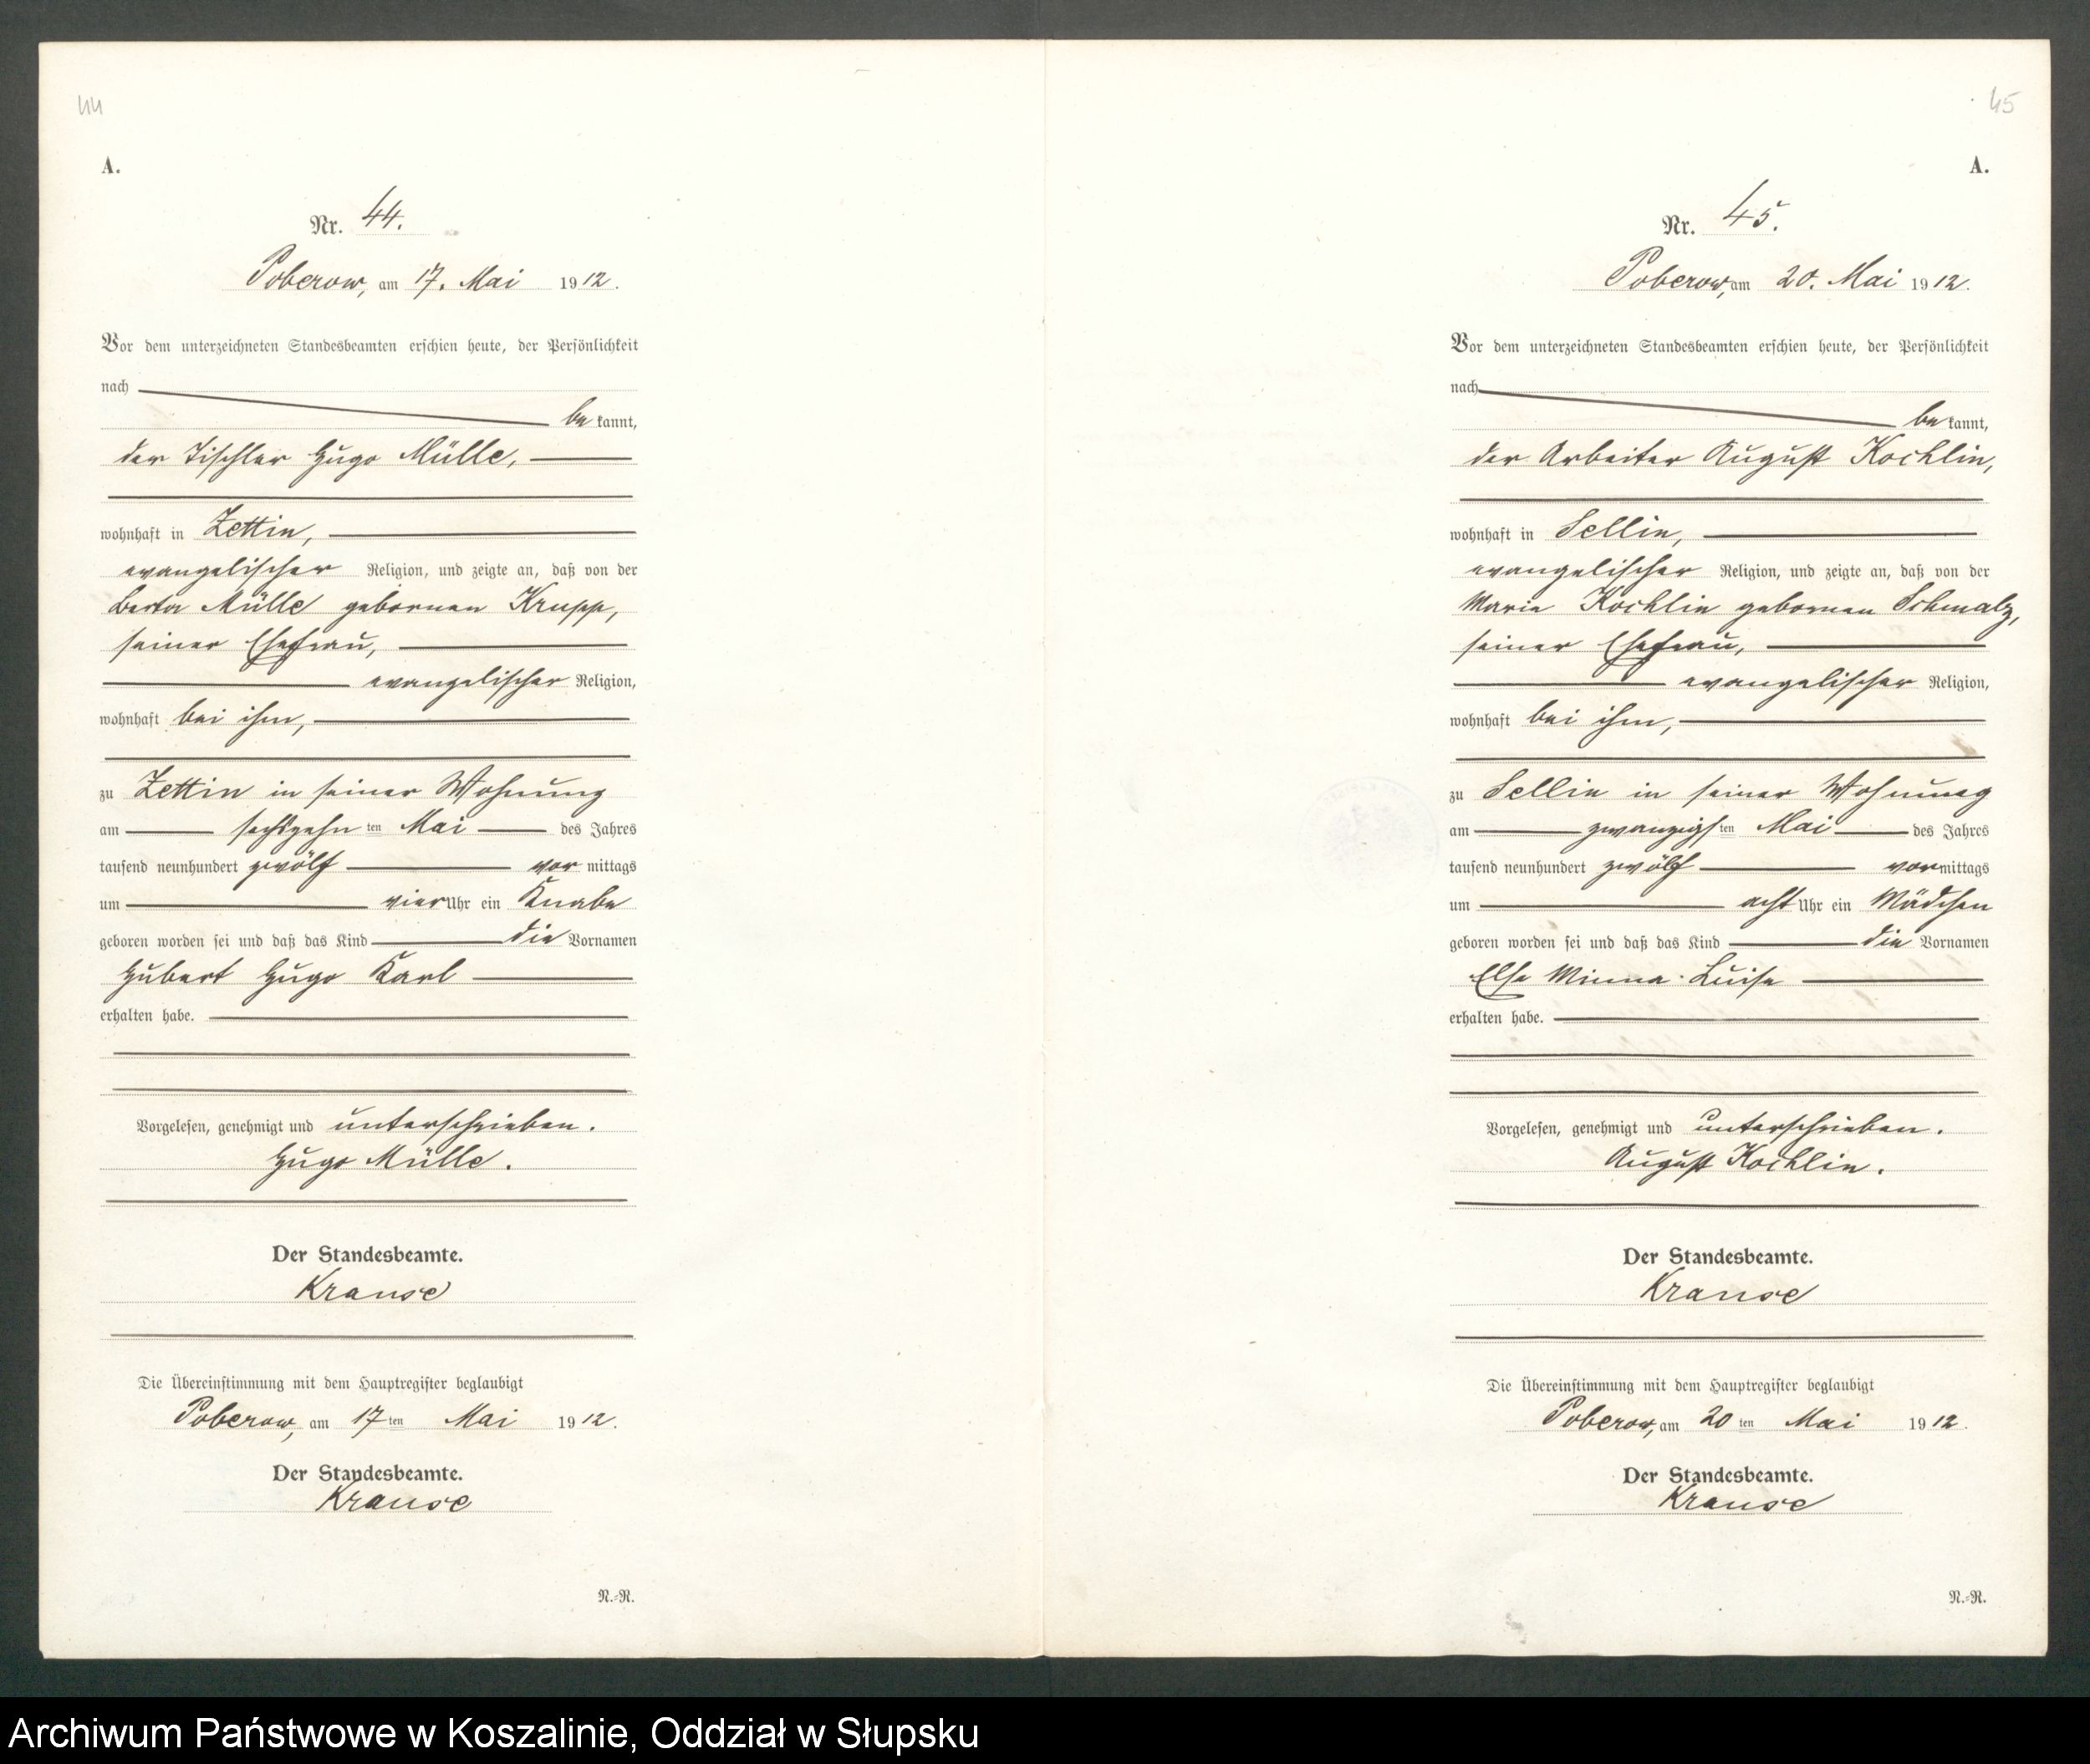 44
A.
Nr. 44.
Poberow, am 17. Mai 1912.
Vor dem unterzeichneten Standesbeamten erschien heute, der Persönlichkeit
nach
bekannt,
der Tischler Hugo Mülle,
wohnhaft in Zettin,
evangelischer Religion, und zeigte an, daß von der
Berta Mülle gebornen Krupp,
seiner Ehefrau,
evangelischer Religion,
wohnhaft bei ihm,
zu Zettin in seiner Wohnung
am sechszehnten Mai des Jahres
tausend neunhundert zwölf vormittags
um vier Uhr ein Knabe
geboren worden sei und daß das Kind die Vornamen
Hubert Hugo Karl
erhalten habe.
Vorgelesen, genehmigt und unterschrieben.
Hugo Mülle.
Der Standesbeamte.
Krause
Die Übereinstimmung mit dem Hauptregister beglaubigt
Poberow, am 17ten Mai 1912.
Der Standesbeamte.
Krause
N.-R.
45
A.
Nr. 45.
Poberow, am 20. Mai 1912.
Vor dem unterzeichneten Standesbeamten erschien heute, der Persönlichkeit
nach
bekannt,
der Arbeiter August Kochlin,
wohnhaft in Sellin,
evangelischer Religion, und zeigte an, daß von der
Marie Kochlin gebornen Schmalz,
seiner Ehefrau,
evangelischer Religion,
wohnhaft bei ihm,
zu Sellin in seiner Wohnung
am zwanzigsten Mai des Jahres
tausend neunhundert zwölf vormittags
um acht Uhr ein Mädchen
geboren worden sei und daß das Kind die Vornamen
Else Minna Luise
erhalten habe.
Vorgelesen, genehmigt und unterschrieben.
August Kochlin.
Der Standesbeamte.
Krause
Die Übereinstimmung mit dem Hauptregister beglaubigt
Poberow, am 20ten Mai 1912.
Der Standesbeamte.
Krause
N.-R.
Archiwum Państwowe w Koszalinie, Oddział w Słupsku